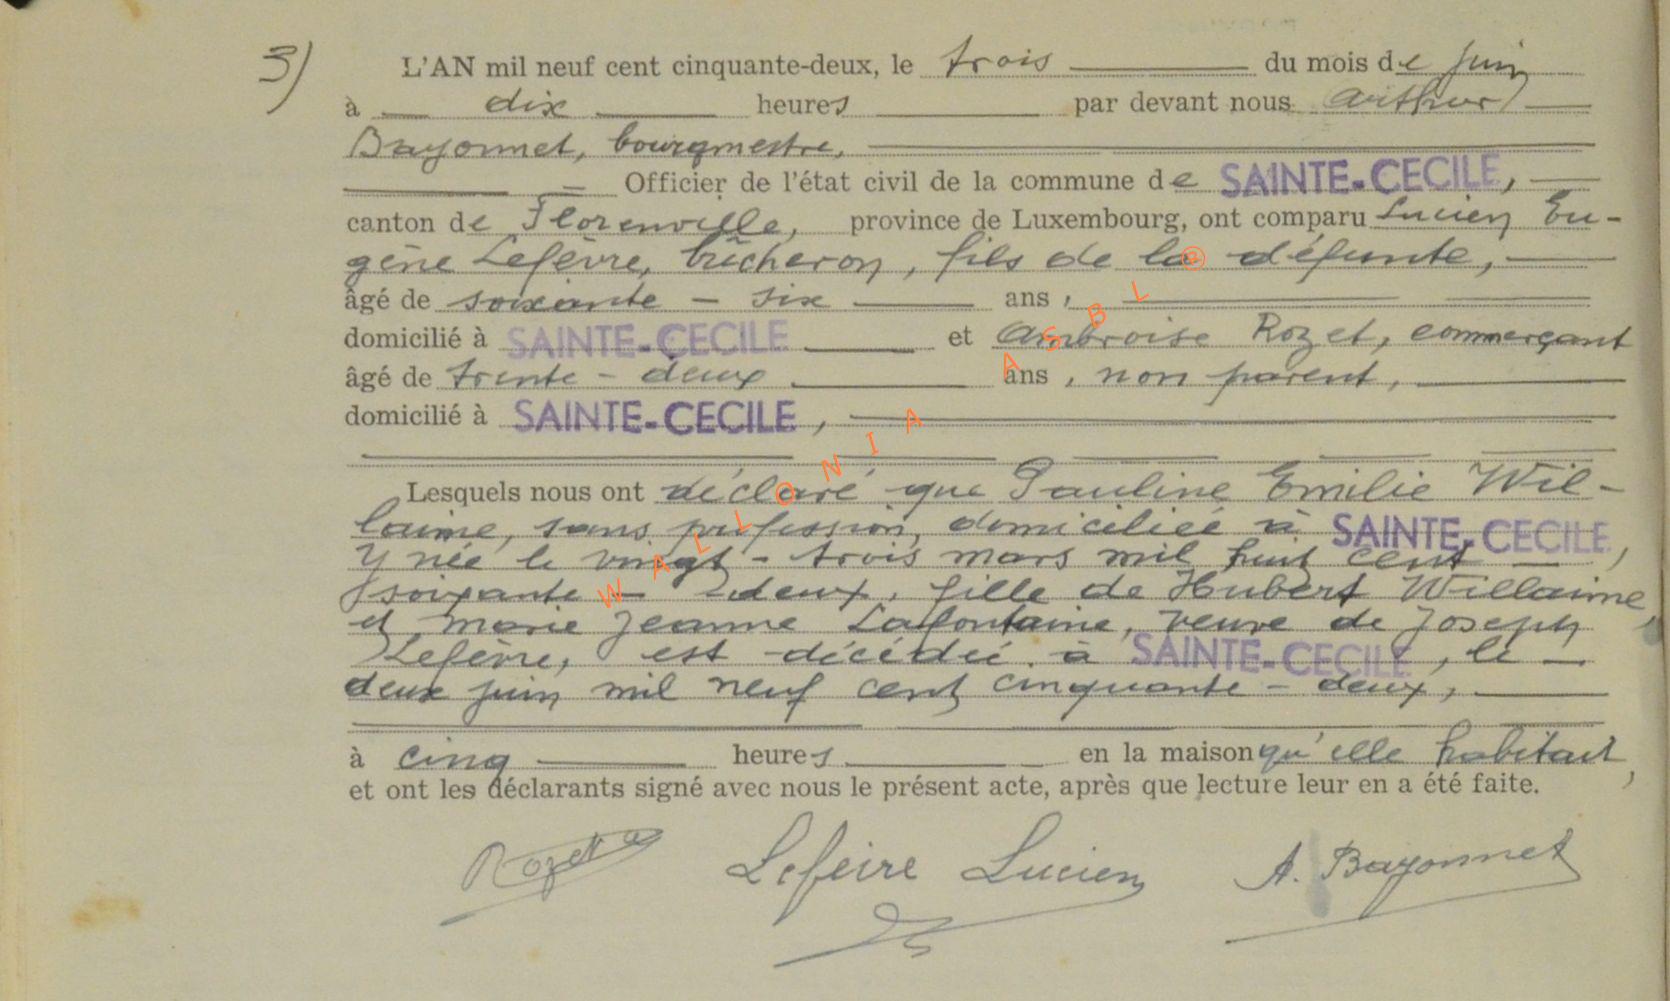 3) L'AN mil neuf cent cinquante-deux, le trois du mois de juin
à dix heures par devant nous Arthur
Bayonnet, bourgmestre,
Officier de l'état civil de la commune de SAINTE-CECILE,
canton de Florenville, province de Luxembourg, ont comparu Lucien Eu-
gène Lefèvre, bûcheron, fils de la défunte,
âgé de soixante - six ans,
domicilié à SAINTE-CECILE et Ambroise Rozet, commerçant
âgé de trente - deux ans, non parent,
domicilié à SAINTE-CECILE,
Lesquels nous ont déclaré que Pauline Emilie Wil-
laime, sans profession, domiciliée à SAINTE-CECILE,
y née le vingt - trois mars mil huit cent
soixante - deux, fille de Hubert Willaime,
et Marie Jeanne Lafontaine, veuve de Joseph
Lefèvre, est décédée à SAINTE-CECILE, le
deux juin mil neuf cent cinquante - deux,
à cinq heures en la maison qu'elle habitait,
et ont les déclarants signé avec nous le présent acte, après que lecture leur en a été faite.
Rozet A Lefèvre Lucien A. Bayonnet
WALLONIA ASBL ®